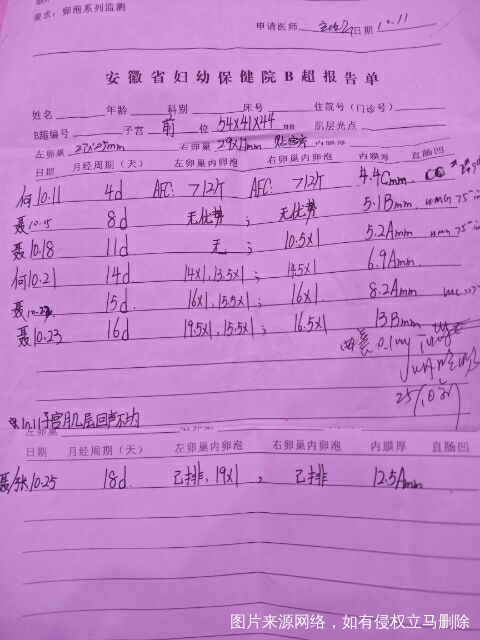 要求：卵泡系列监测
申请医师 日期 10.11
安徽省妇幼保健院B超报告单
姓名 年龄 科别 床号 住院号（门诊号）
B超编号 子宫 前 位 54X41X44 mm 肌层光点
左卵巢 27X27mm 右卵巢 29X17mm 内膜厚
日期 月经周期（天） 左卵巢内卵泡 右卵巢内卵泡 内膜厚 直肠凹
何10.11 4d AFC: >12个 AFC: >12个 4.4Cmm
聂10.15 8d 无优势 ; 无优势 5.1Bmm
聂10.18 11d 无 ; 10.5X1 5.2Amm
何10.21 14d 14X1,13.5X1 ; 14.5X1 6.9Amm
聂10.22 15d 16X1,15.5X1 ; 16X1 8.2Amm
聂10.23 16d 19.5X1,15.5X1 ; 16.5X1 13Bmm
0.1mg
10.11子宫肌层回声不均
左卵巢 右卵巢 内膜厚
日期 月经周期（天） 左卵巢内卵泡 右卵巢内卵泡 内膜厚 直肠凹
聂/张10.25 18d 已排，19X1 , 已排 12.5Amm
图片来源网络，如有侵权立马删除